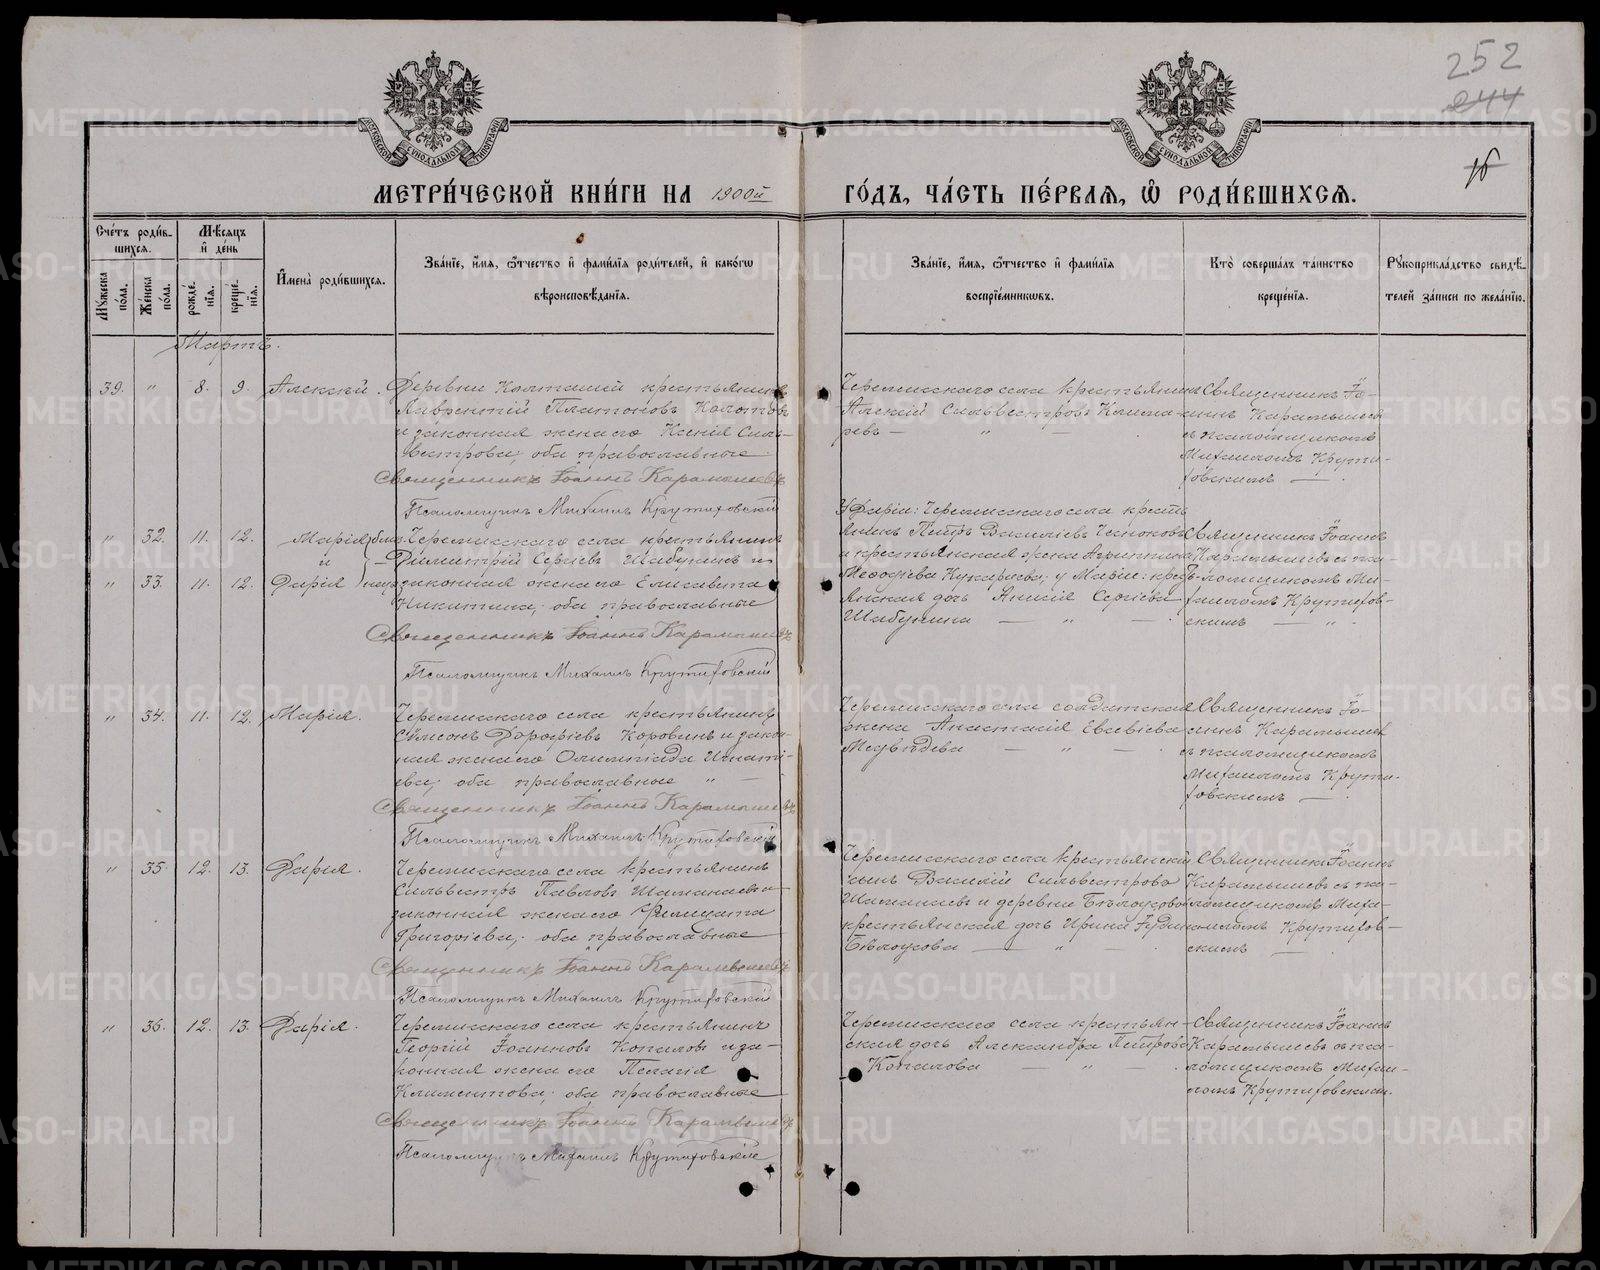 252
244
16
МОСКОВСКОЙ СѴНОДАЛЬНОЙ ТИПОГРАФІИ
МОСКОВСКОЙ СѴНОДАЛЬНОЙ ТИПОГРАФІИ
МЕТРИ́ЧЕСКОЙ КНИ́ГИ НА 1900й ГО́ДЪ, ЧА́СТЬ ПЕ́РВАЯ, Ѽ РОДИ́ВШИХСЯ.
Сче́тъ роди́в-
шихся.
Мꙋ́жеска по́ла.
Же́нска по́ла.
Мѣ́сяцъ
и҆ де́нь
рожде́-
нїѧ.
креще́-
нїѧ.
И҆мена̀ роди́вшихся.
Зва́нїе, и҆́мя, ѻ҆́тчество и҆ фами́лїя роди́телей, и҆ како́гѡ
вѣроисповѣ́данїя.
Зва́нїе, и҆́мя, ѻ҆́тчество и҆ фами́лїя
воспрїе́мникѡвъ.
Кто̀ соверша́лъ та́инство
креще́нїя.
Рꙋкоприкла́дство свидѣ́-
телей за́писи по жела́нїю.
Мартъ.
39. " 8. 9. Алексѣй.
Деревни Колташей крестьянинъ
Лаврентій Платоновъ Колотовъ
и законная жена его Ксенія Силь-
вестрова, оба православные
Священникъ Іоаннъ Карамышевъ
Псаломщикъ Михаилъ Крутиховскій
Черемисскаго села крестьянинъ
Алексій Сильвестровъ Кошка-
ревъ — " —
Священникъ Іо-
аннъ Карамышевъ
съ псаломщикомъ
Михаиломъ Крути-
ховскимъ — .
" 32. 11. 12. Марія
и
" 33. 11. 12. Дарія
близ-
нецы
Черемисскаго села крестьянинъ
Димитрій Сергіевъ Шабунинъ и
законная жена его Елисавета
Никитина, оба православные
Священникъ Іоаннъ Карамышевъ
Псаломщикъ Михаилъ Крутиховскій
У Даріи: Черемисскаго села кресть-
янинъ Петръ Василіевъ Чесноковъ
и крестьянская жена Агрипина
Меѳодіева Кухарева; у Маріи: кресть-
янская дочь Анисія Сергіева
Шабунина — " — .
Священникъ Іоаннъ
Карамышевъ съ пса-
ломщикомъ Ми-
хаиломъ Крутихов-
скимъ — " .
" 34. 11. 12. Марія.
Черемисскаго села крестьянинъ
Сѵмеонъ Дороѳіевъ Коровинъ и закон-
ная жена его Олимпіада Игнаті-
ева, оба православные " —
Священникъ Іоаннъ Карамышевъ
Псаломщикъ Михаилъ Крутиховскій
Черемисскаго села солдатская
жена Анастасія Евсевіева
Медвѣдева — " — .
Священникъ Іо-
аннъ Карамышевъ
съ псаломщикомъ
Михаиломъ Крути-
ховскимъ —
" 35. 12. 13. Дарія.
Черемисскаго села крестьянинъ
Сильвестръ Павловъ Шаманаевъ и
законная жена его Фелицата
Григоріева, оба православные
Священникъ Іоаннъ Карамышевъ
Псаломщикъ Михаилъ Крутиховскій
Черемисскаго села крестьянскій
сынъ Василій Сильвестровъ
Шаманаевъ и деревни Бѣлоусовой
крестьянская дочь Ирина
Бѣлоусова — " — .
Священникъ Іоаннъ
Карамышевъ съ пса-
ломщикомъ Миха-
иломъ Крутихов-
скимъ —
" 36. 12. 13. Дарія.
Черемисскаго села крестьянинъ
Георгій Іоанновъ Копаловъ и за-
конная жена его Пелагія
Климентова, оба православные
Священникъ Іоаннъ Карамышевъ
Псаломщикъ Михаилъ Крутиховскій
Черемисскаго села крестьян-
ская дочь Александра Петрова
Копалова — " — .
Священникъ Іоаннъ
Карамышевъ съ пса-
ломщикомъ Михаи-
ломъ Крутиховскимъ.
METRIKI.GASO-URAL.RU